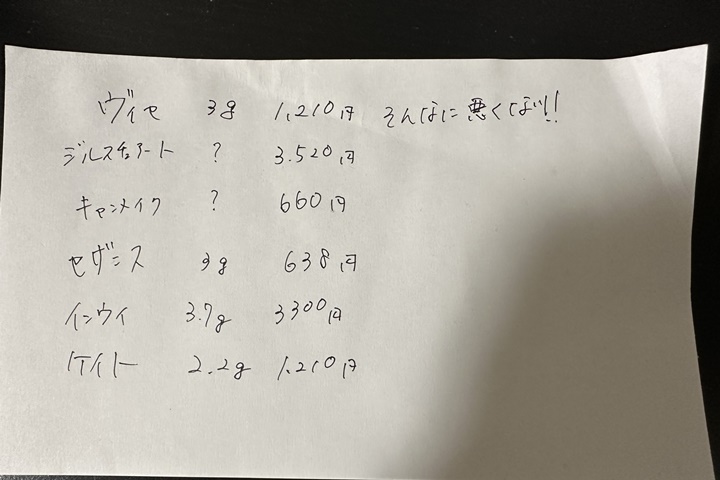 ヴィセ 3g 1,210円 そんなに悪くない!!
ジルスチュアート ? 3.520円
キャンメイク ? 660円
セザンヌ 3g 638円
インウイ 3.7g 3300円
ケイト 2.2g 1,210円